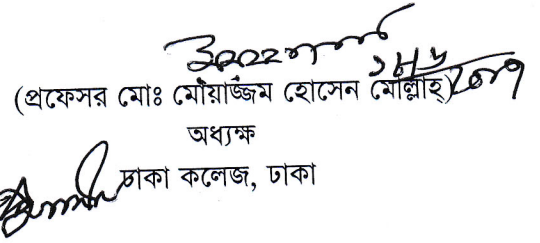 (প্রফেসর মোঃ মোয়াজ্জম হোসেন মোল্লাহ্)
অধ্যক্ষ
ঢাকা কলেজ, ঢাকা